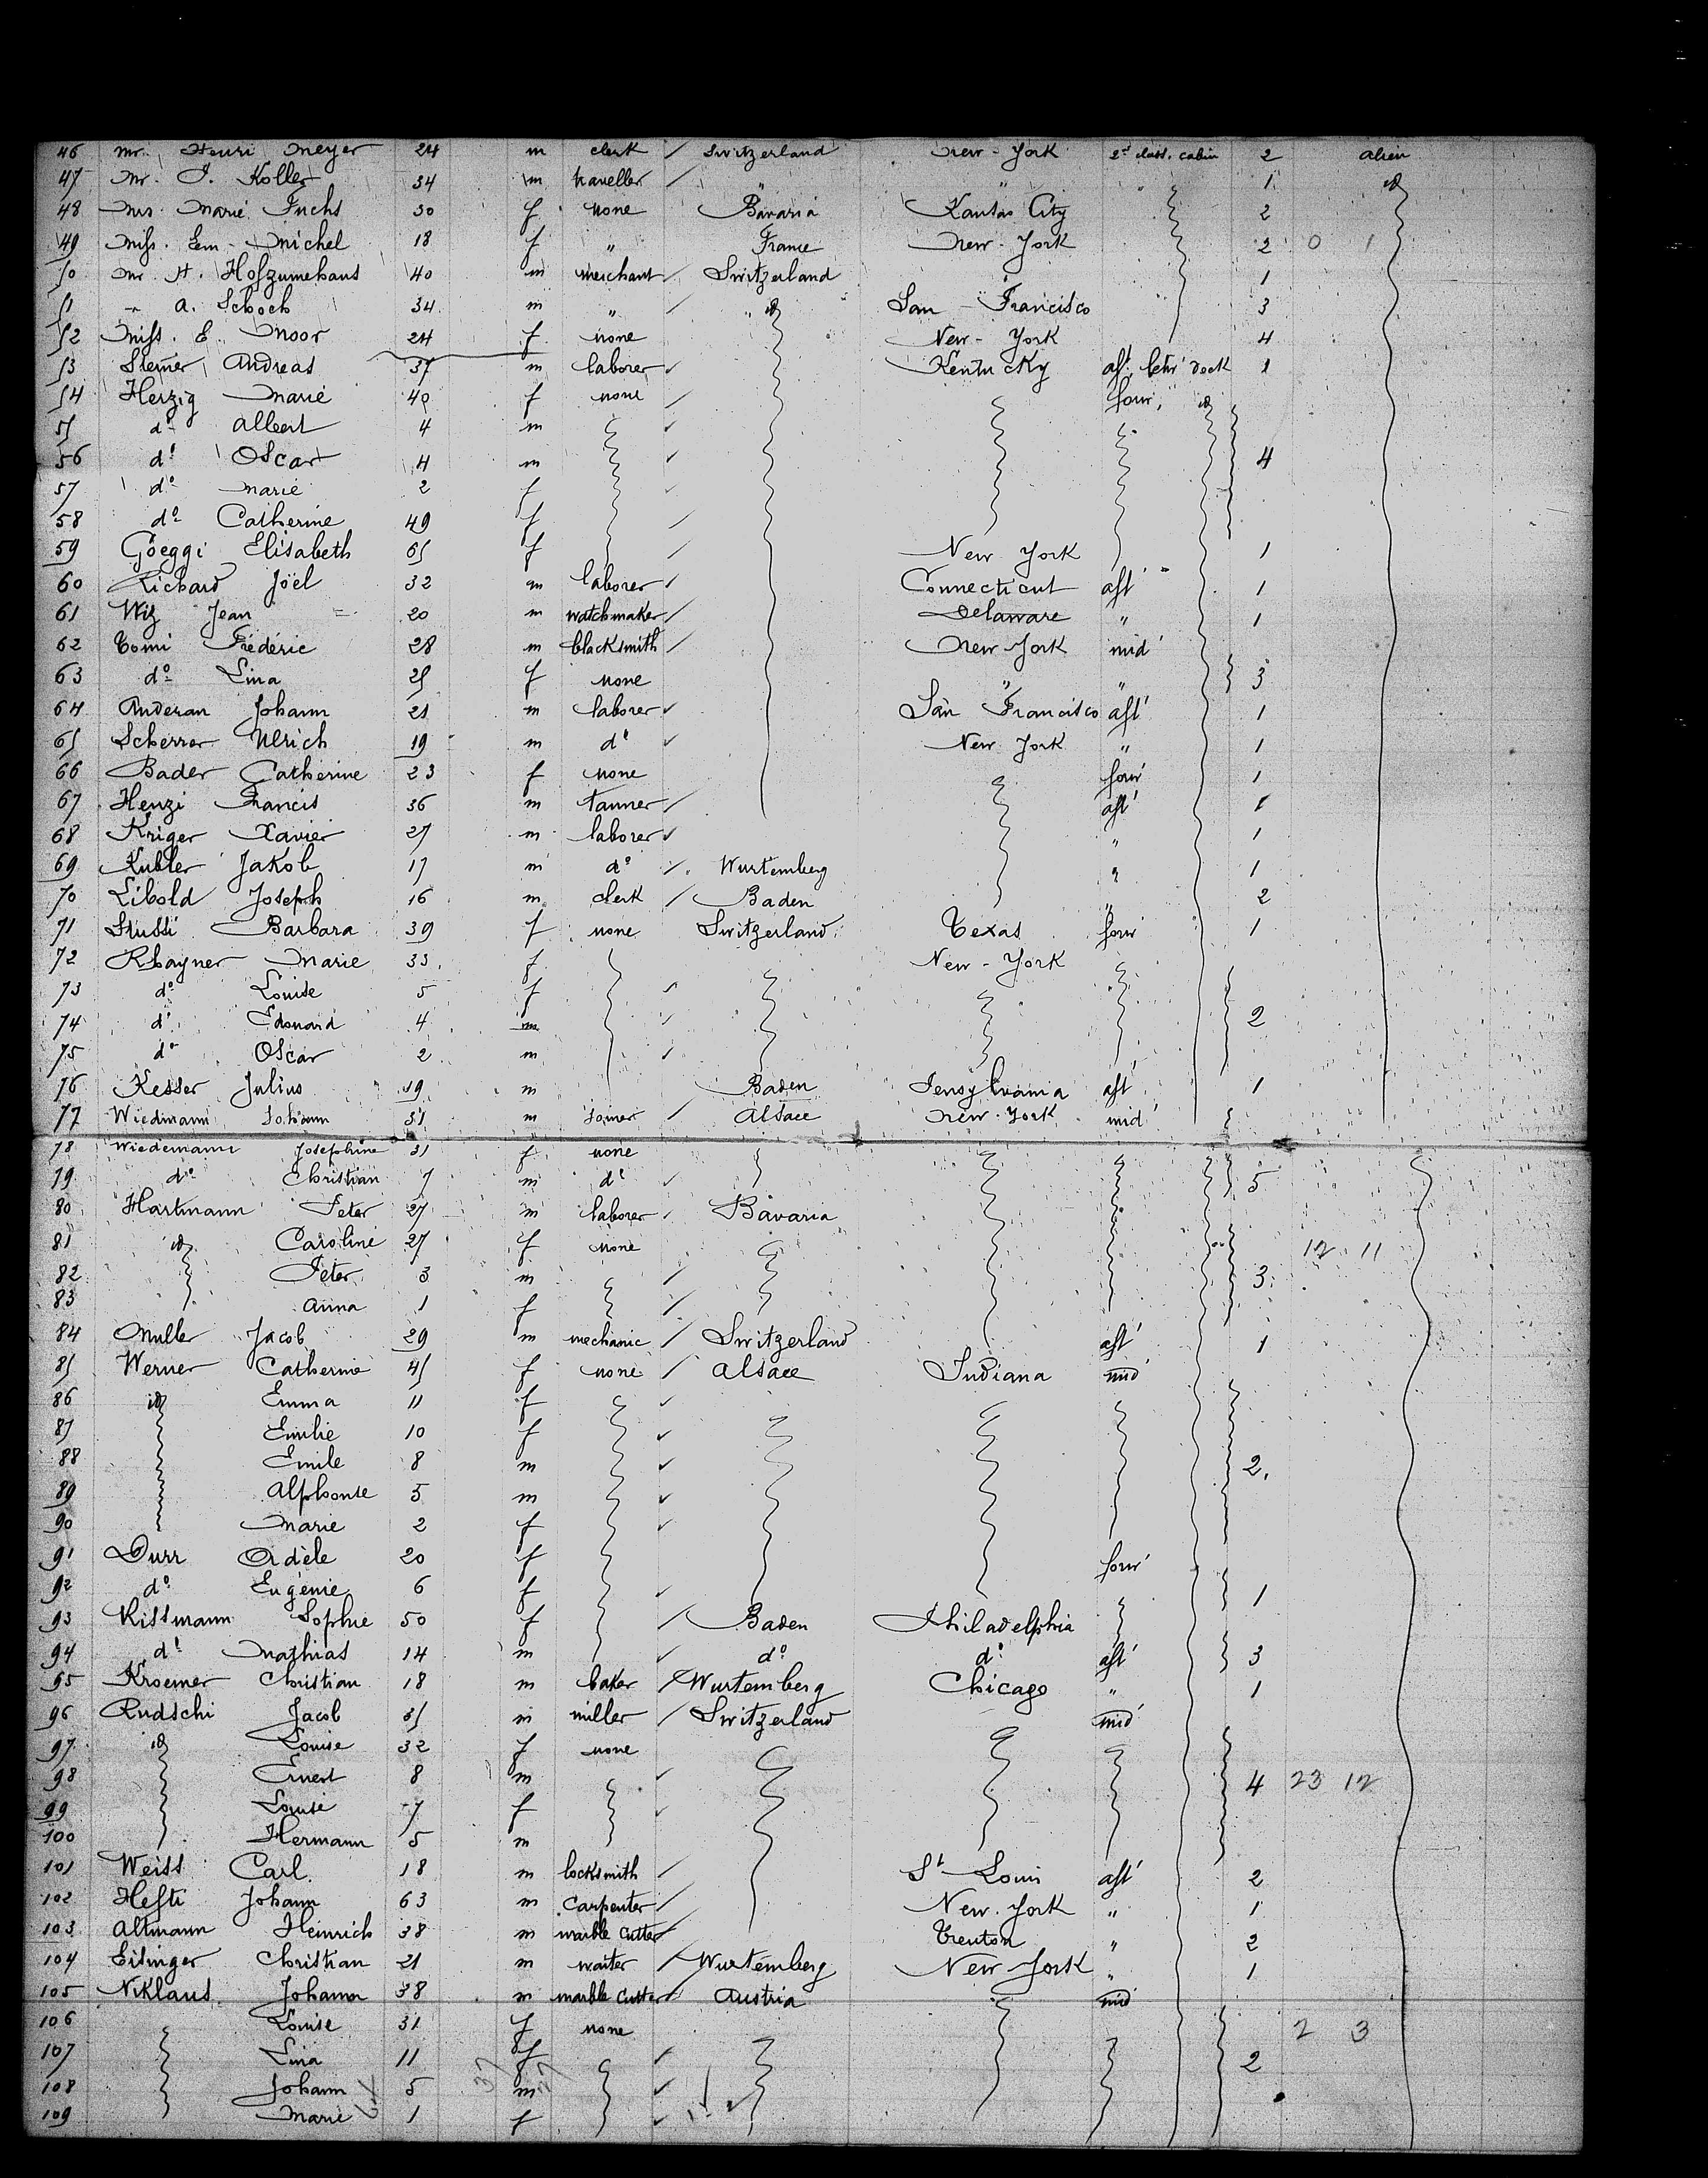 46 Mr. Henri Meyer 24 m clerk Switzerland New-York 2d class. cabin 2 alien
47 Mr. J. Koller 34 m traveller " " " 1 id
48 Mrs. Marie Fuchs 30 f none Bavaria Kansas City 2
49 Miss. Em. Michel 18 f " France New-York 2 0 1
50 Mr H. Hofzumehaus 40 m merchant Switzerland " 1
51 " A. Schoch 34 m " id San Francisco 3
52 Miss. E. Moor 24 f none New-York 4
53 Steiner Andreas 37 m laborer Kentucky aft betw deck 1
54 Herzig Marie 40 f none forw' id
55 do Albert 4 m
56 do Oscar 4 m 4
57 do Marie 2 f
58 do Catherine 49 f
59 Göeggi Elisabeth 65 f New York 1
60 Richard Joël 32 m laborer Connecticut aft' 1
61 Wiz Jean 20 m watchmaker Delaware " 1
62 Tomi Frédéric 28 m blacksmith New York mid'
63 do Lina 25 f none " " 3
64 Anderan Johann 21 m laborer San Francisco aft' 1
65 Scherrer Ulrich 19 m do New York " 1
66 Bader Catherine 23 f none forw' 1
67 Henzi Francis 36 m tanner aft' 1
68 Kriger Xavier 27 m laborer " 1
69 Kubler Jakob 17 m do Wurtemberg " 1
70 Libold Joseph 16 m clerk Baden " 2
71 Stussi Barbara 39 f none Switzerland Texas forw' 1
72 Rhayner Marie 33 f New-York
73 do Louise 5 f
74 do Edouard 4 m 2
75 do Oscar 2 m
76 Kesser Julius 19 m Baden Pensylvania aft' 1
77 Wiedmann Johann 31 m joiner Alsace New-York mid'
78 Wiedemann Josephine 31 f none
79 do Christian 7 m do 5
80 Hartmann Peter 27 m laborer Bavaria
81 id Caroline 27 f none 12 11
82 Peter 3 m 3
83 Anna 1 f
84 Muller Jacob 29 m mechanic Switzerland aft' 1
85 Werner Catherine 45 f none Alsace Indiana mid'
86 id Emma 11 f
87 Emilie 10 f
88 Emile 8 m 2
89 Alphonse 5 m
90 Marie 2 f
91 Durr Adèle 20 f forw'
92 do Eugénie 6 f 1
93 Kissmann Sophie 50 f Baden Philadelphia
94 do Mathias 14 m do do aft' 3
95 Kroemer Christian 18 m baker Wurtemberg Chicago " 1
96 Rudschi Jacob 35 m miller Switzerland mid'
97 id Louise 32 f none
98 Ernest 8 m 4 23 12
99 Louise 7 f
100 Hermann 5 m
101 Weiss Carl 18 m locksmith St Louis aft' 2
102 Hefti Johann 63 m carpenter New-York " 1
103 Altmann Heinrich 38 m marble cutter Trenton " 2
104 Eisinger Christian 21 m waiter Wurtemberg New York " 1
105 Niklaus Johann 38 m marble cutter Austria mid'
106 Louise 31 f none 2 3
107 Lina 11 f 2
108 Johann 5 m
109 Marie 1 f